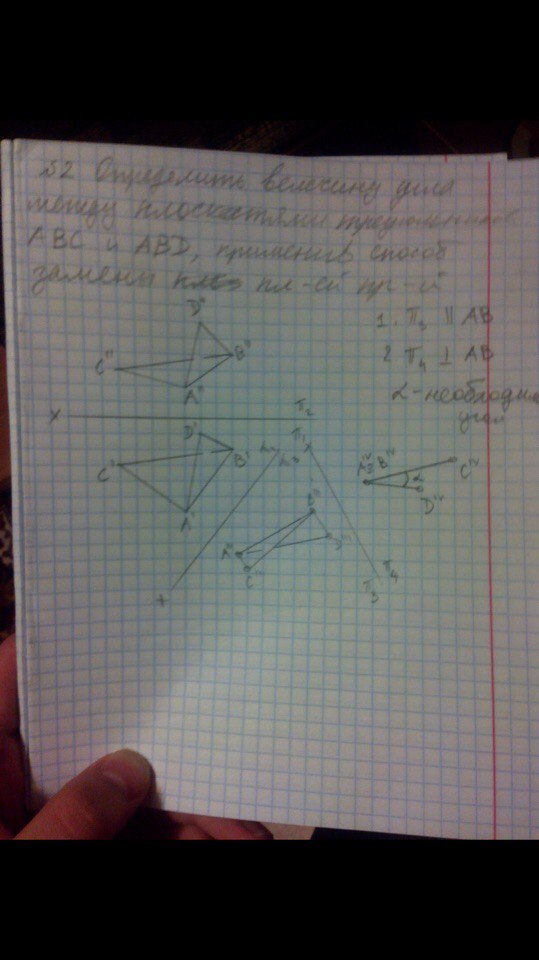 52 Определить величину угла
между плоскостями треугольников
ABC и ABD, применив способ
замены пл-ей пр-й
1. П₃ || AB
2 П₄ ⊥ AB
α - необходим
угол
D"
C"
B"
A"
X
П₂
П₁
D'
C'
B'
A'
П₁
П₃
B'''
A'''
D'''
C'''
П₃
П₄
A'ⱽ B'ⱽ
C'ⱽ
α
D'ⱽ